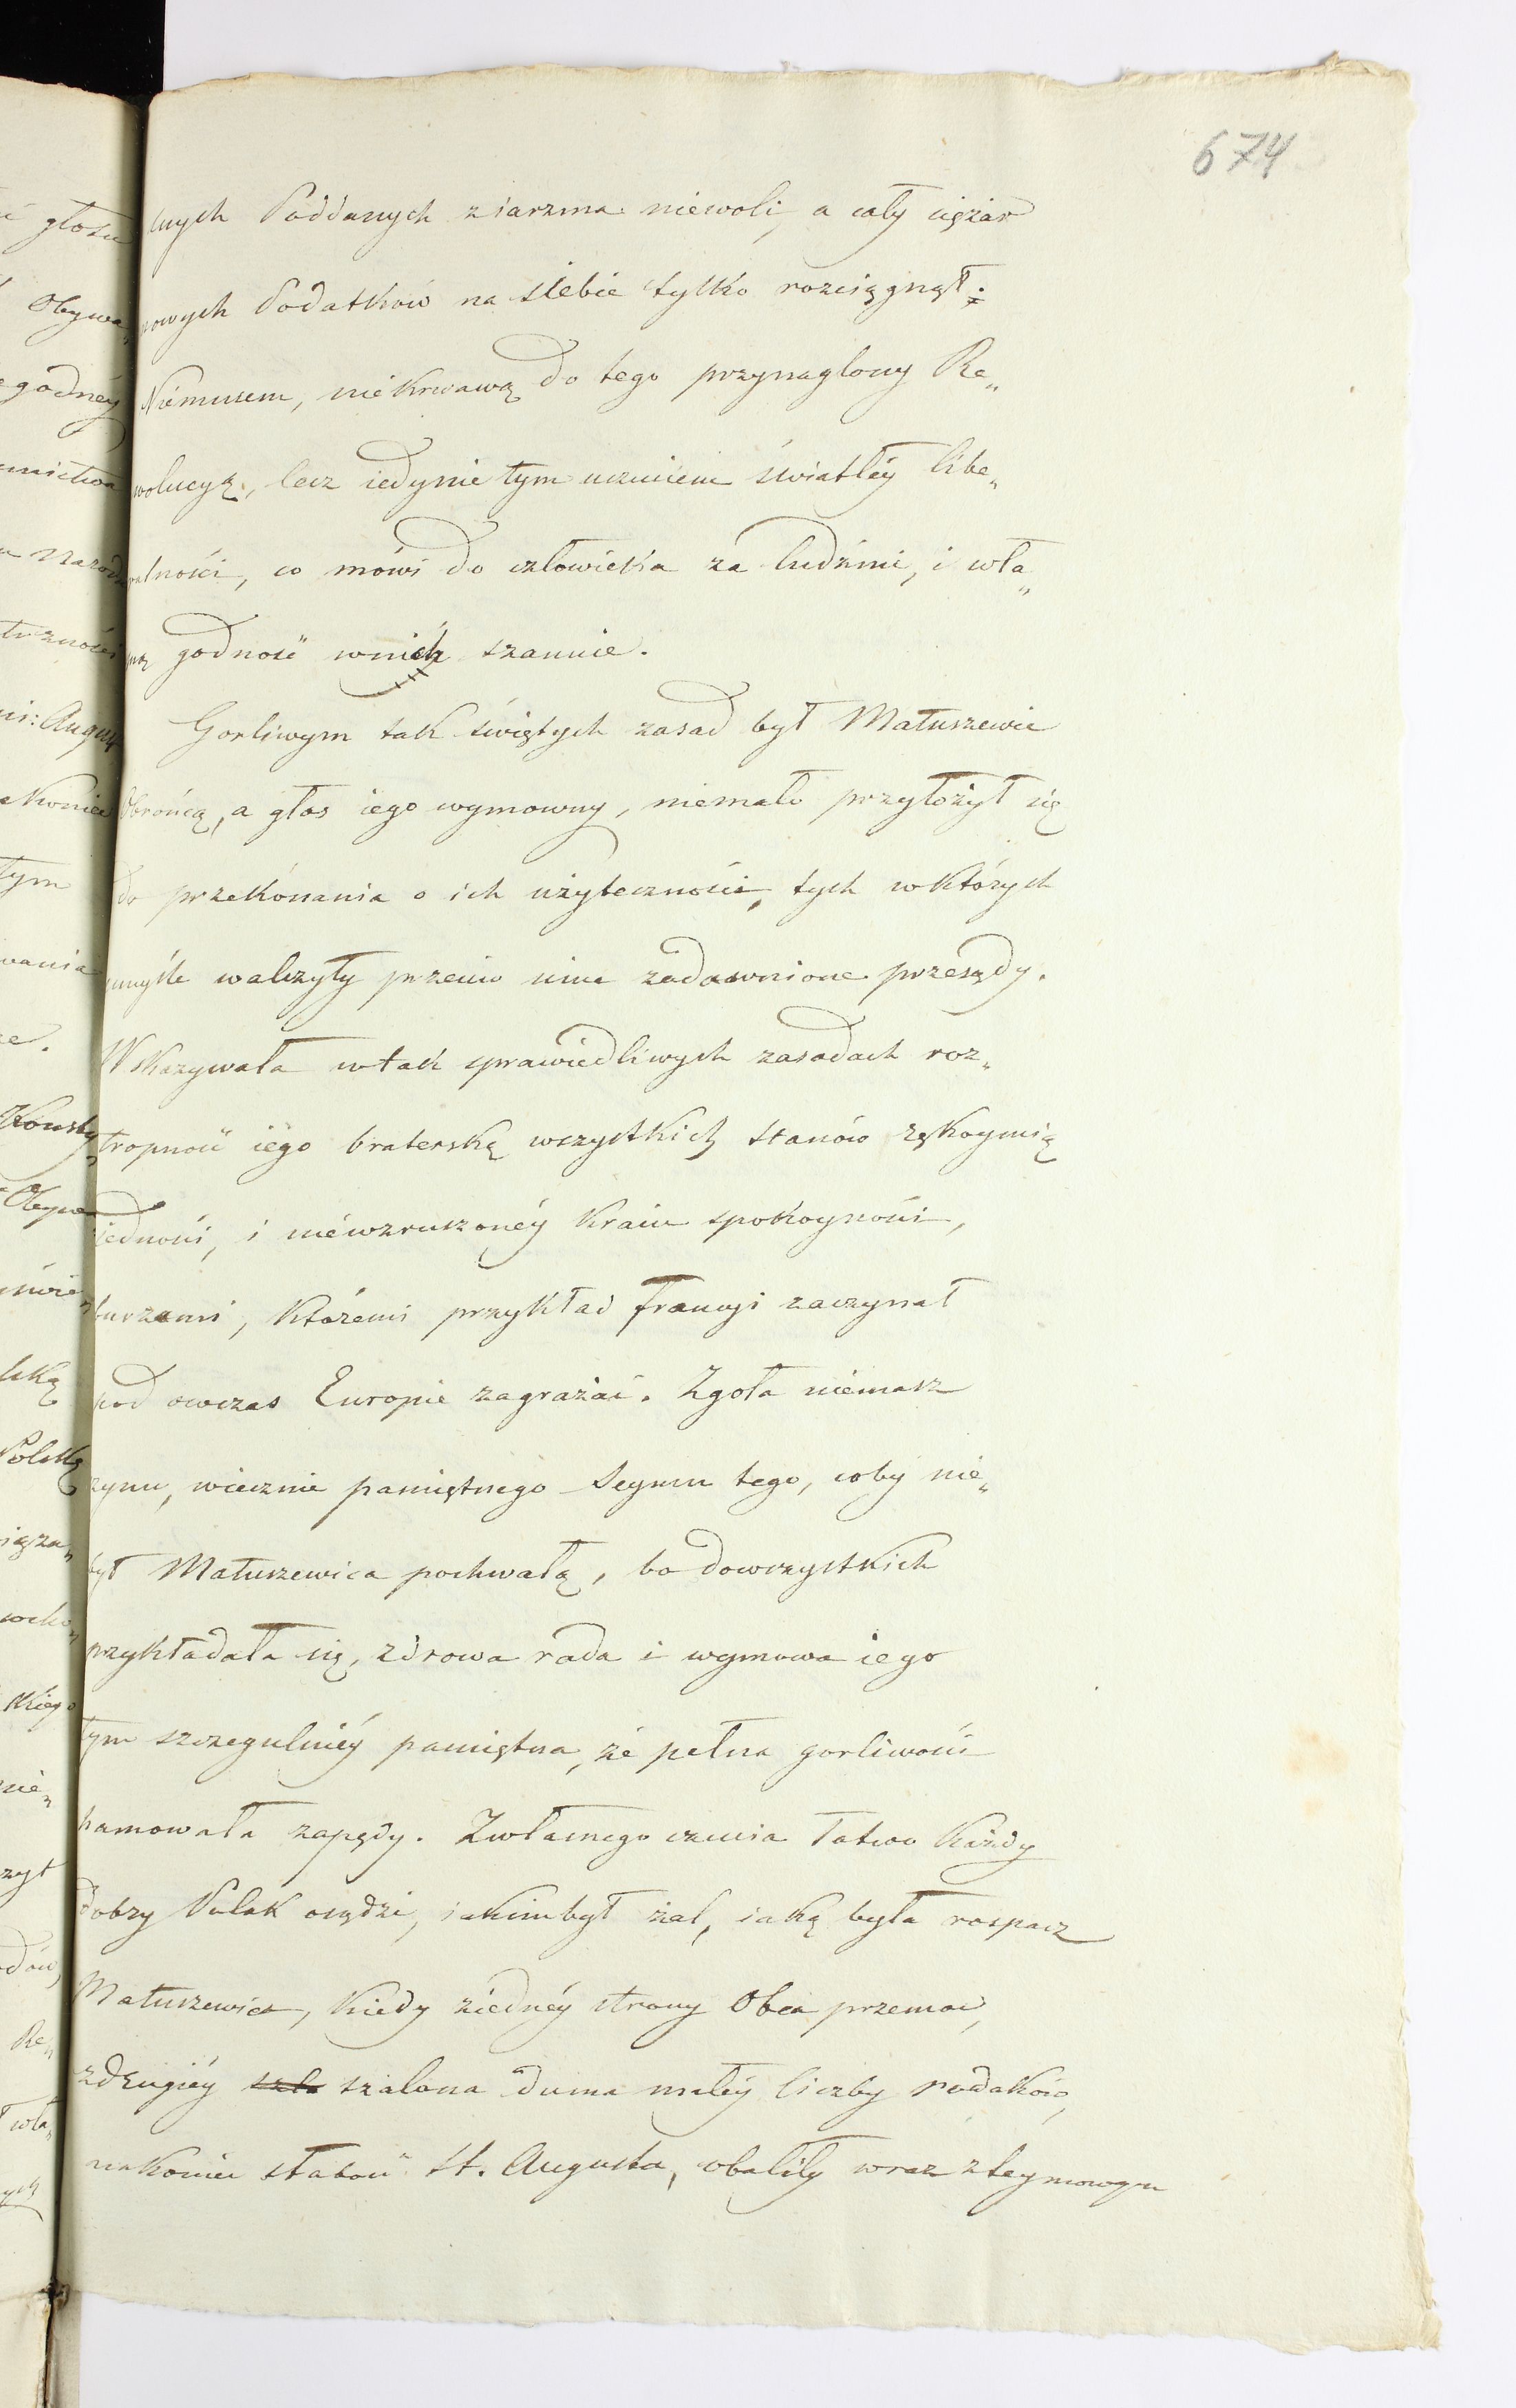 674
nych Poddanych z iarzma niewoli, a cały ciężar
nowych Podatków na siebie tylko rozciągnął:
Niemusem, niekrwawą do tego przynaglony Re„
wolucyą, lecz iedynie tym uczuciem światłéy libe„
ralności, co mówi do człowieka za ludźmi, i wła„
sną godność wnich szanuie.
Gorliwym tak świętych zasad był Matuszewic
Obrońcą, a głos iego wymowny, niemało przyłożył się
do przekónania o ich użyteczności, tych w których
umyśle walczyły przeciw nim zadawnione przesądy.
Wskazywała w tak sprawiedliwych zasadach roz„
tropność iego braterską wszystkich stanów rękoymią
iedności, i niéwzruszonéy kraiu spokoyności,
burzami, którémi przykład Francyi zaczynał
pod owczas Europie zagrażać. Zgoła niémasz
czynu, wiecznie pamiętnego Seymu tego, coby nie„
był Matuszewica pochwałą, bo dowszystkich
przykładała się, zdrowa rada i wymowa iego
tym szczegulniéy pamiętna, że pełna gorliwości
hamowała zapędy. Zwłasnego czucia łatwo każdy
dobry Polak osądzi, iakimbył żal, iaką była rospacz
Matuszewica, kiedy ziednéy strony Obca przemoc,
zdrugiéy szalona duma małéy liczby rodaków,
nakoniec słabość St. Augusta, obaliły wraz z